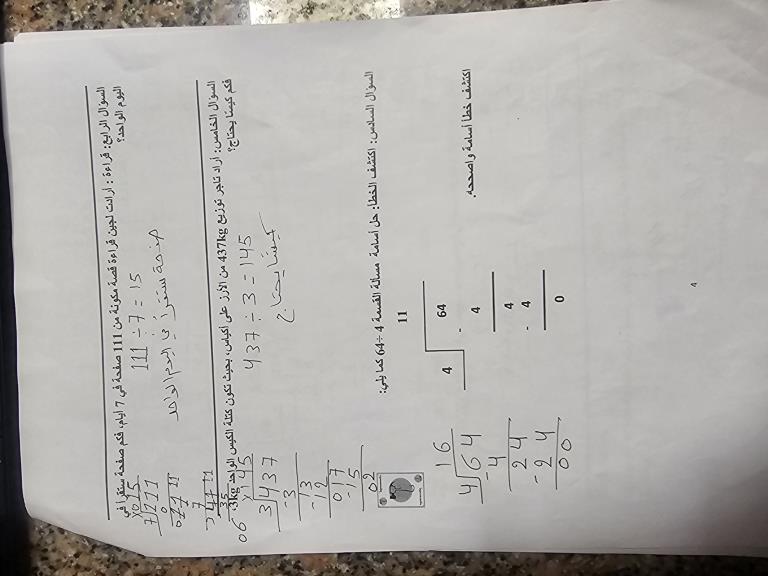 السؤال الرابع: قراءة : أرادت لجين قراءة قصة مكونة من 111 صفحة في 7 أيام، فكم صفحة ستقرأ في
اليوم الواحد؟
111 ÷ 7 = 15
صفحة ستقرأ في اليوم الواحد
015
7 111
السؤال الخامس: أراد تاجر توزيع 437kg من الأرز على أكياس، بحيث تكون كتلة الكيس الواحد 3kg.
فكم كيسًا يحتاج؟
437 ÷ 3 = 145
كيسًا يحتاج
145
3 437
-3
13
-12
017
-15
02
السؤال السادس: اكتشف الخطأ: حل أسامة مسألة القسمة 4 ÷ 64 كما يلي:
11
4 64
- 4
4
- 4
0
16
4 64
-4
24
-24
00
اكتشف خطأ أسامة واصححه.
4